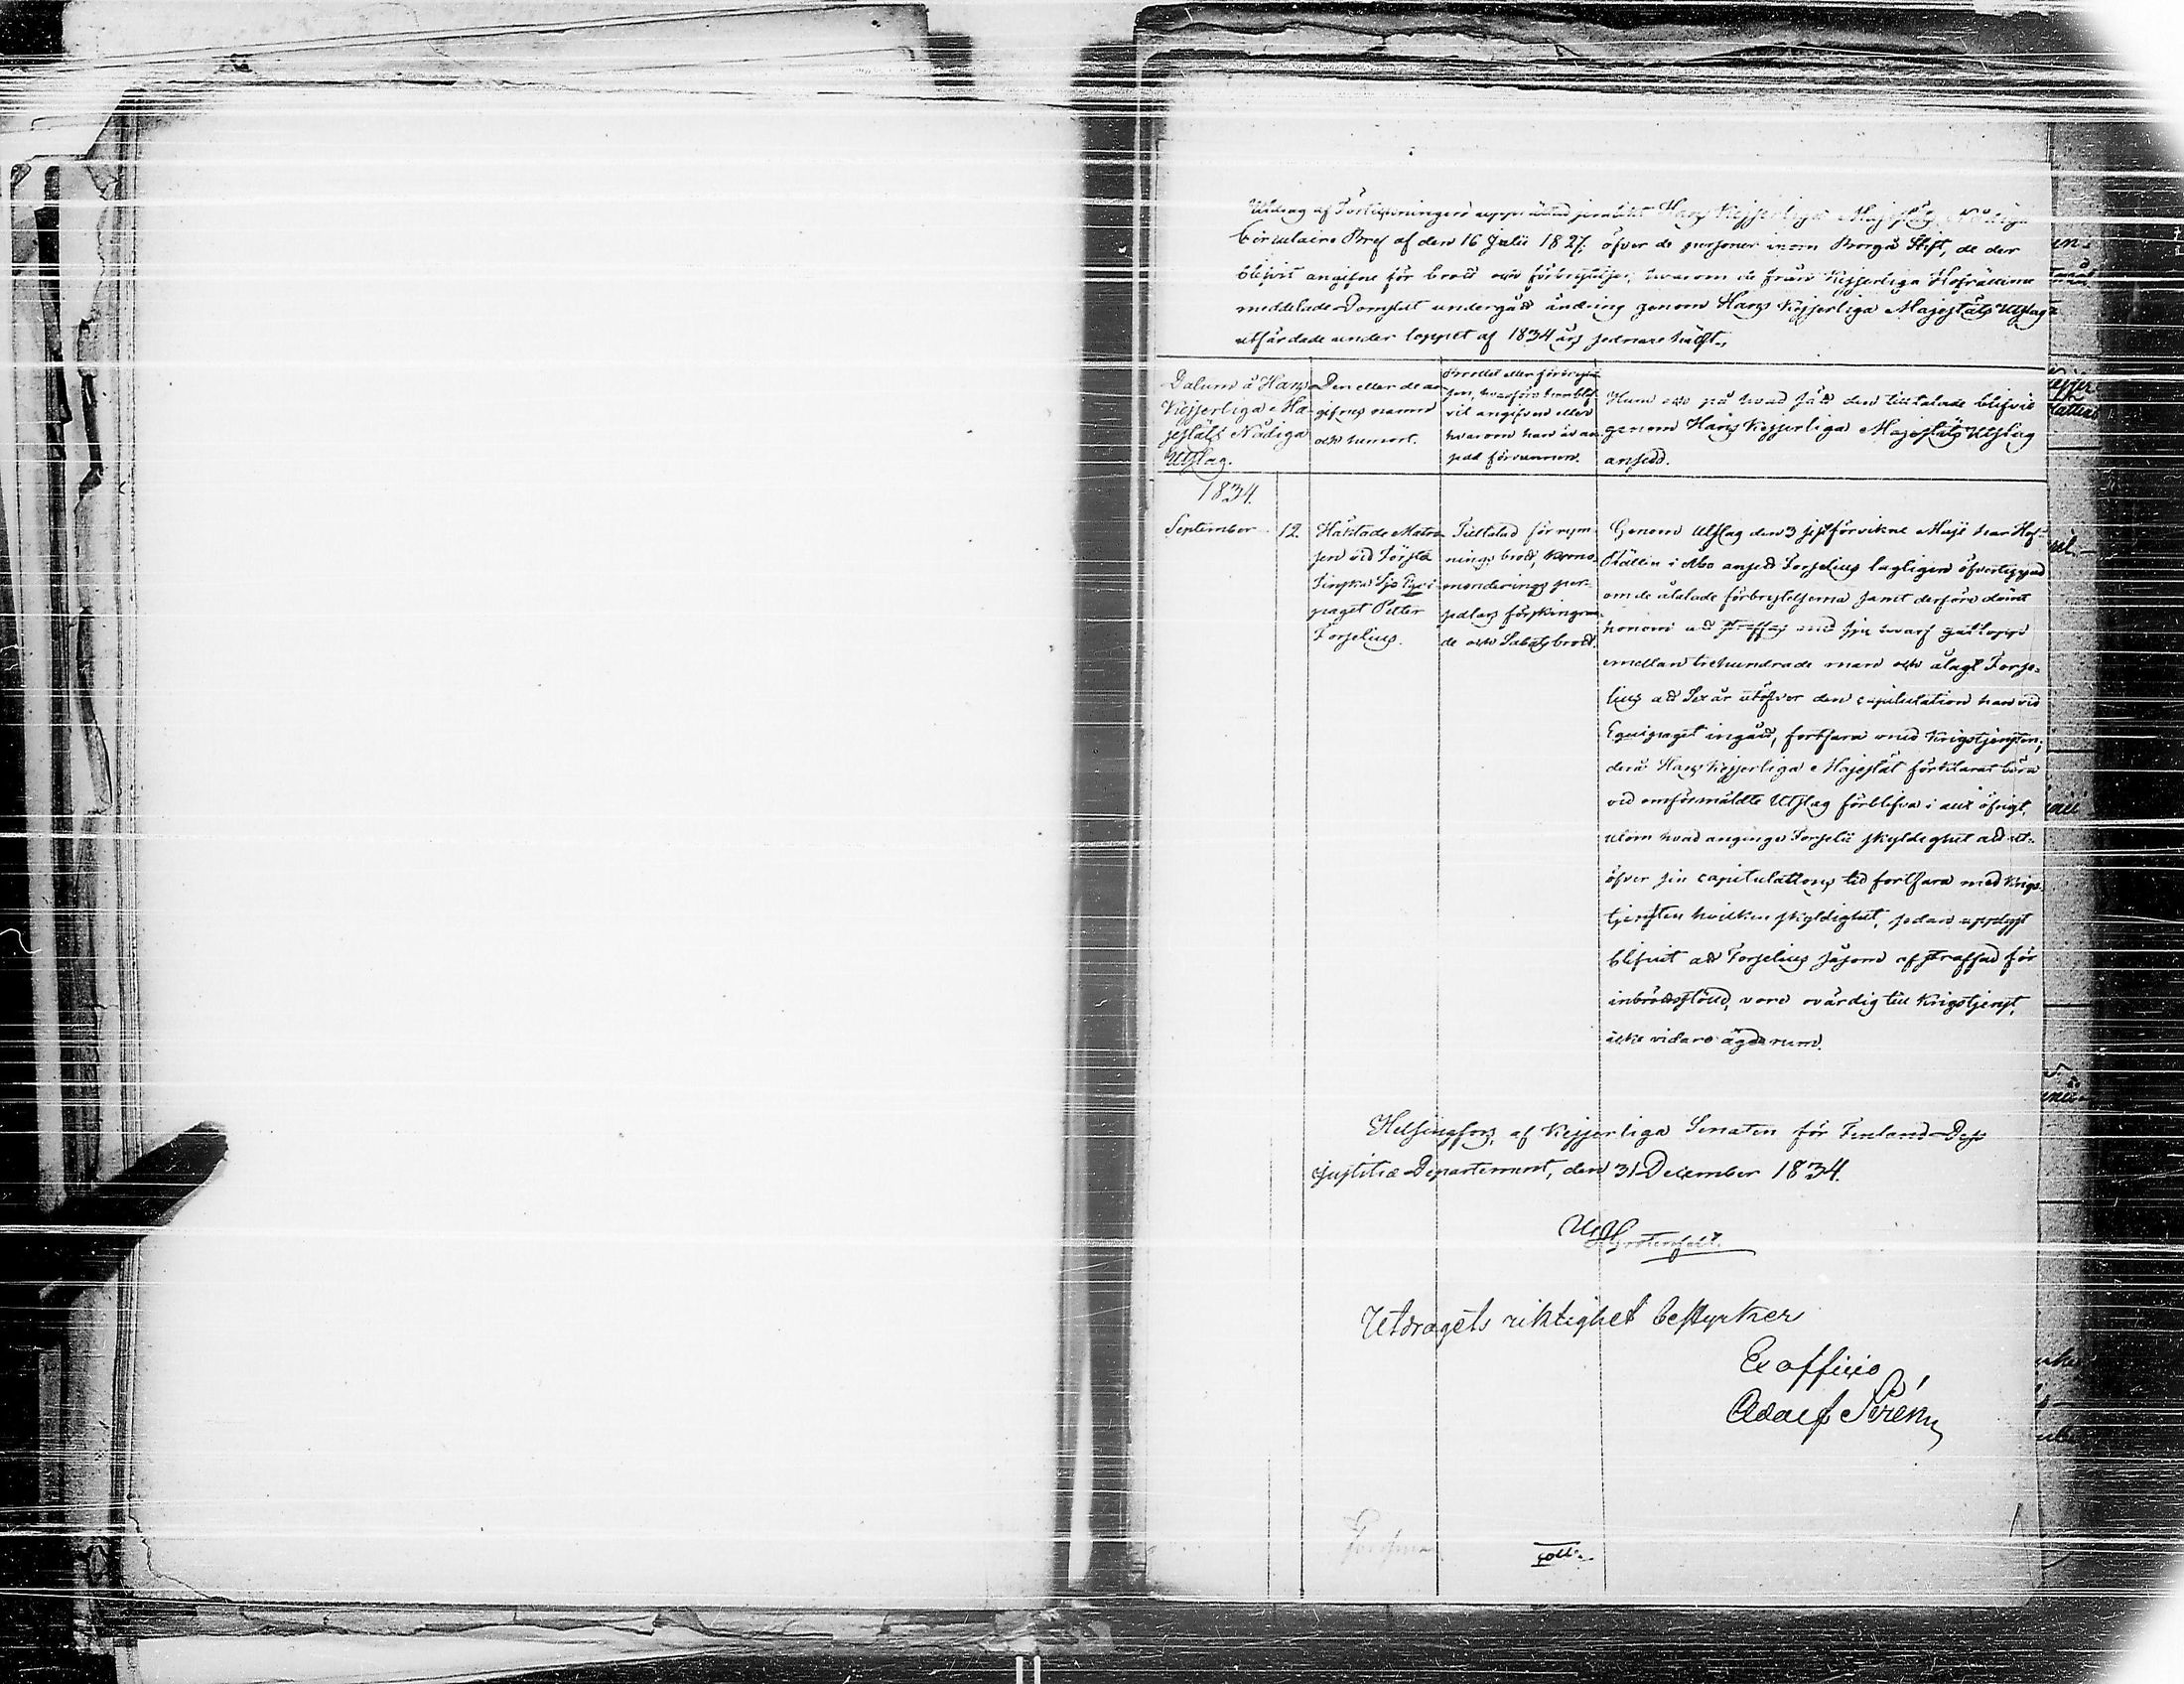 Utdrag af Förteckningen upprättad jemlikt Hans Kejserliga Majestäts Nådiga
Circulaire Bref af den 16 Julii 1827, öfver de personer inom Borgå Stift, de der
blifvit angifne för brott och förbrytelser, hvarom de från Kejserliga Hofrätterne
meddelade Domslut undergått ändring genom Hans Kejserliga Majestäts Utslag
utfärdade under loppet af 1834 års sednare hälft.
Datum å Hans
Kejserliga Ma-
jestäts Nådiga
Utslag.
Den eller de an-
gifnes namn
och hemort.
Brottet eller förbrytel-
sen, hvarföre han blif-
vit angifven eller
hvarom han är an-
sedd förvunnen.
Huru och på hvad sätt den tilltalade blifvit
genom Hans Kejserliga Majestäts Utslag
ansedd.
1834.
September 12.
Häktade Matro-
sen vid Första
Finska Sjö Equi-
paget Petter
Forselius.
Tilltalad för rym-
nings brott, kromo-
menderings per-
sedlars förskingran-
de och Sabbatsbrott.
Genom Utslag den 3 sistförvikne Maji har Hof-
Rätten i Åbo ansett Forselius lagligen öfvertygad
om de åtalade förbrytelserna samt derföre dömt
honom att straffas med sju hvarf gatlopp
emellan trehundrade man och ålagt Forse-
lius att Sex år utöfver den capitulation han vid
Equipaget ingått, fortfara med Krigstjensten;
derå Hans Kejserliga Majestät förklarat bero
vid omförmäldte Utslag förblifva i allt öfrigt,
utom hvad anginge Forselii skyldighet att ut-
öfver sin capitulations tid fortfara med Krigs-
tjensten hvilken skyldighet, sedan upplyst
blifvit att Forselius såsom afstraffad för
inbrottsstöld, vore ovärdig till Krigstjenst,
icke vidare ägde rum.
Helsingfors, af Kejserliga Senaten för Finland Dess
Justitiæ Departement, den 31 December 1834.
Grotenfelt.
Utdragets riktighet bestyrker
Ex officio
Adolf Sirén
coll: